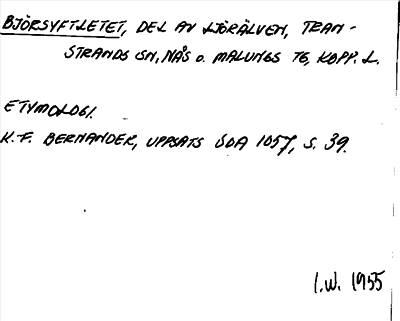 BJÖRSYFTLETET, DEL AV LJÖRÄLVEN, TRAN-
STRANDS SN, NÅS O. MALUNGS TG, KOPP. L.
ETYMOLOGI.
K.-F. BERNANDER, UPPSATS ÖDA 1057, S. 39.
I.W. 1955